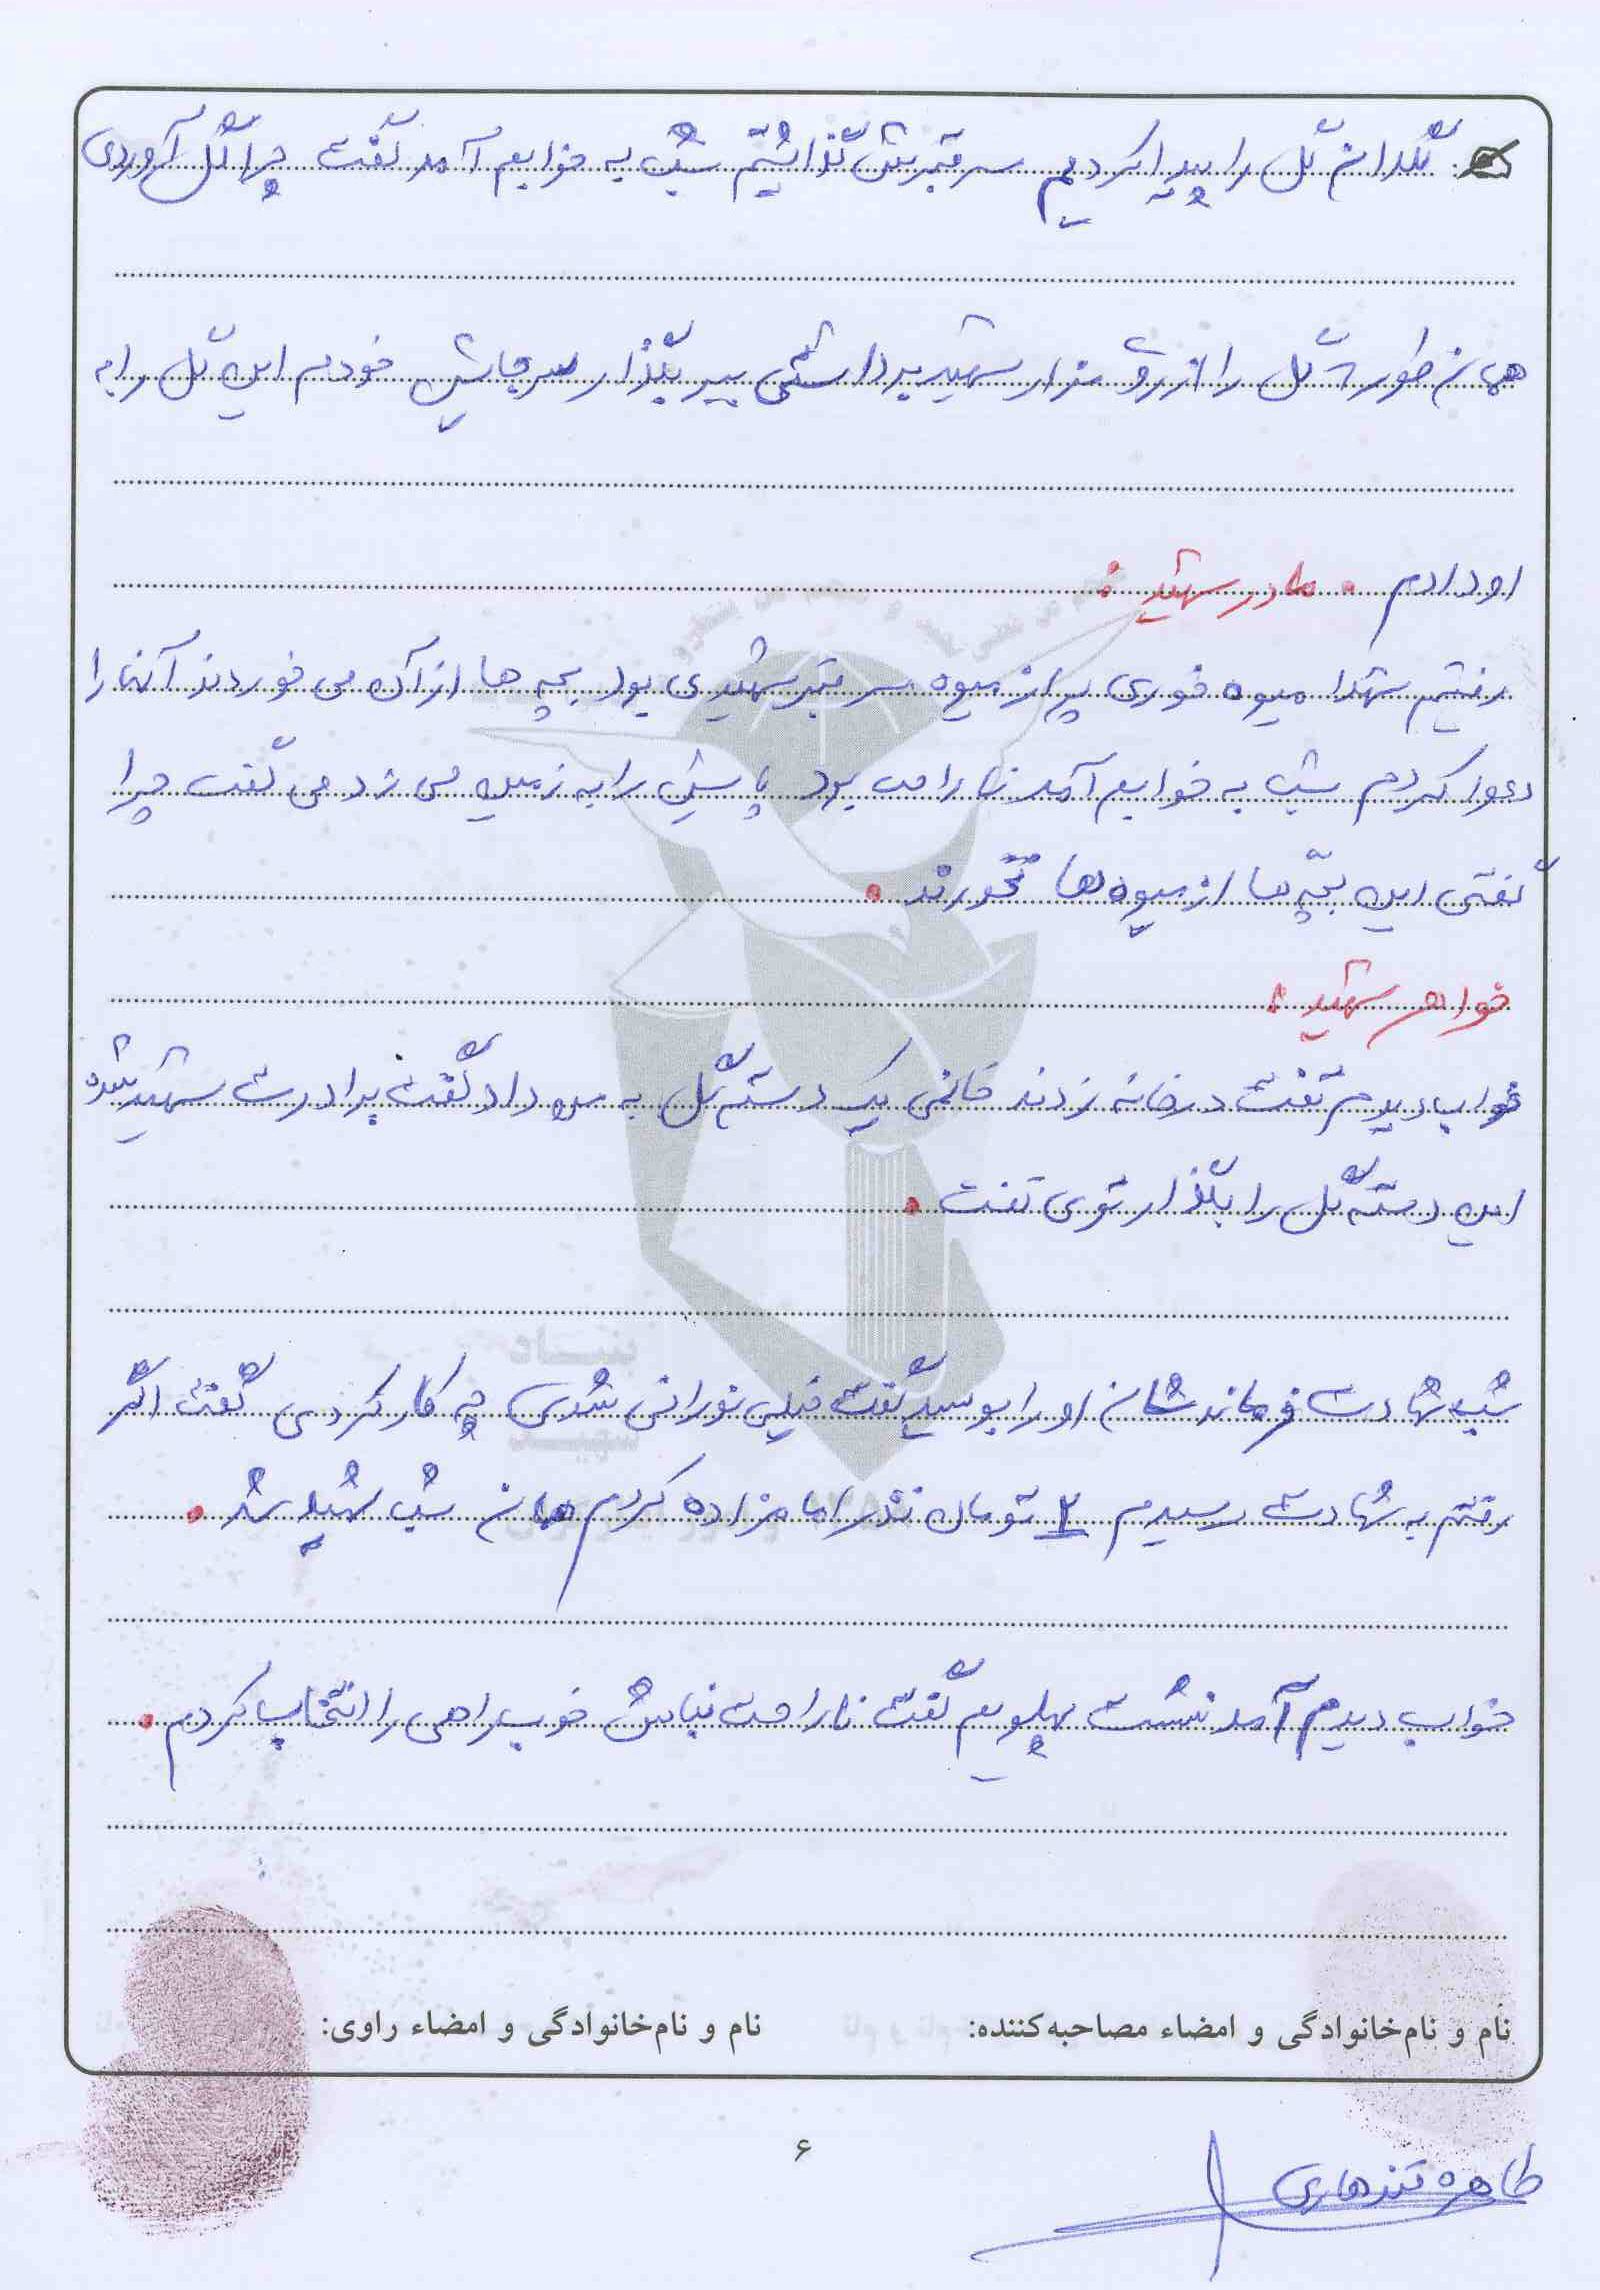 گلدان گل را پیدا کردیم سر قبرش گذاشتیم شب به خوابم آمد گفت چرا گل آوردی
همان طور گل را از روی مزار شهید برداشتی ببر بگذار سر جایش خودم این گل را به
او دادم . مادر شهید :
رفتیم شهدا میوه خوری پر از میوه سر قبر شهیدی بود بچه ها از آن می خوردند آنها را
دعوا کردم شب به خوابم آمد ناراحت بود پایش را به زمین می زد می گفت چرا
گفتی این بچه ها از میوه ها نخورند .
خواهر شهید :
خواب دیدم گفت در خانه زدند خانمی یک دسته گل به من داد گفت برادرت شهید شده
این دسته گل را بگذار توی
شب شهادت فرمانده شان او را بوسید گفت خیلی نورانی شدی چه کار کردی گفت اگر
رفتم به شهادت رسیدم ۲ تومان نذر امامزاده کردم همان شب شهید شد .
خواب دیدم آمد نشست پهلویم گفت ناراحت نباش خوب راهی را انتخاب کردم .
نام و نام‌خانوادگی و امضاء مصاحبه‌کننده: نام و نام‌خانوادگی و امضاء راوی:
۶
طاهره قندهاری